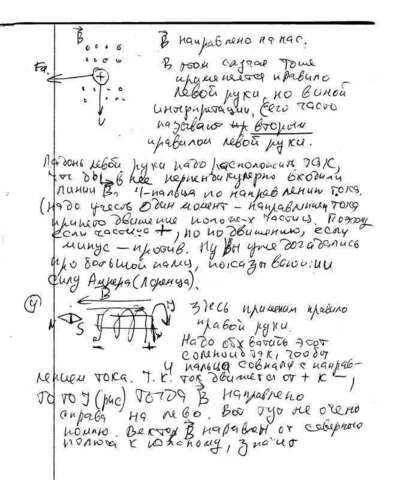 B⃗
B⃗ направлено на нас.
В этом случае тоже
применяется правило
левой руки, но в иной
интерпретации. Его часто
называют вторым
правилом левой руки.
Fa
V
Ладонь левой руки надо расположить так,
что бы в нее перпендикулярно входили
линии B⃗, 4-пальца по направлению тока.
(надо учесть один момент - направлением тока
принято движение полож-х частиц. Поэтому
если частица +, то по движению, если
минус - против. Ну Вы уже догадались
про большой палец, показывающий
силу Ампера (Лоренца).
4
B⃗
N S
Здесь применим правило
правой руки.
Надо обхватить этот
соленоид так, чтобы
4 пальца совпали с направ-
лением тока. Т.К. ток движется от + к -,
то (рис) тогда B⃗ направлено
справа на лево. Вот тут не очень
помню. Вектор B⃗ направлен от северного
полюса к южному, значит